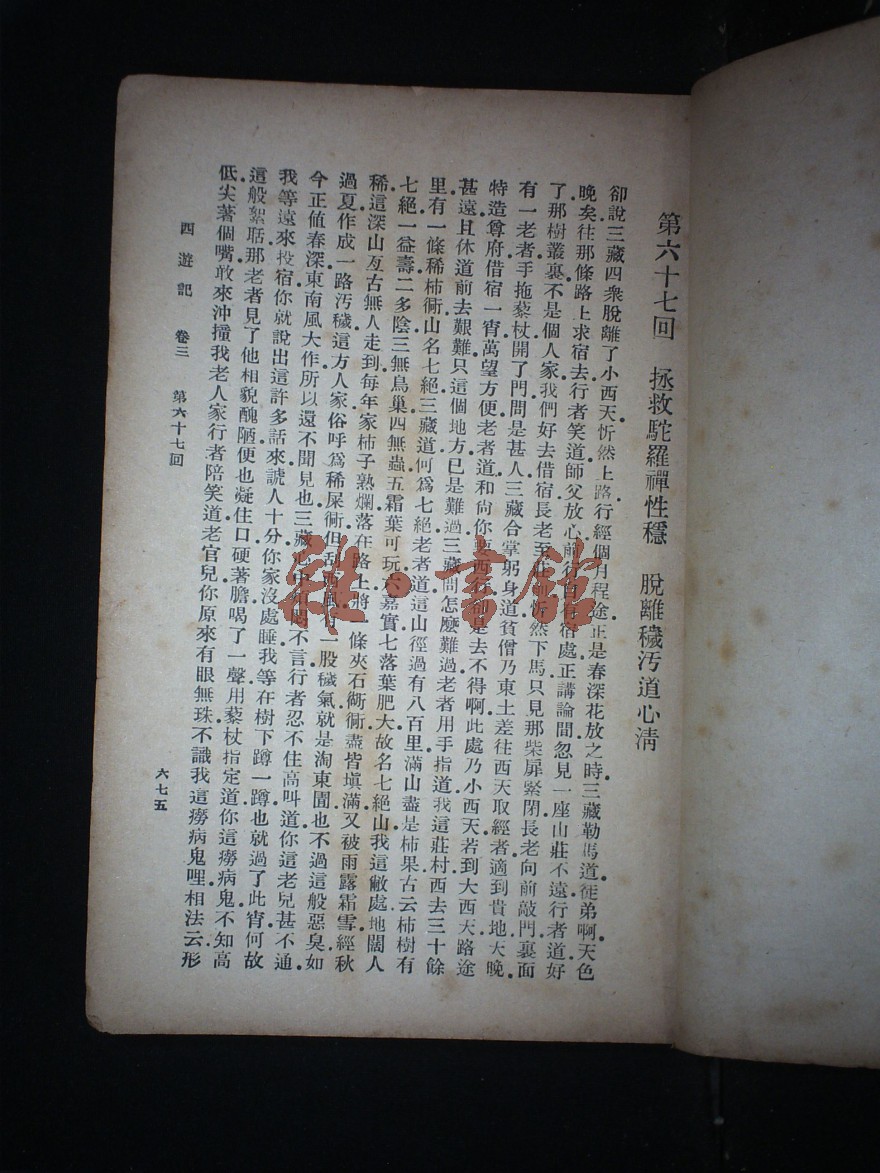 第六十七回　拯救駝羅禪性穩　脫離穢汚道心淸
卻說三藏四衆脫離了小西天忻然上路行經個月程途正是春深花放之時三藏勒馬道徒弟啊天色
晚矣往那條路上求宿去行者笑道師父放心前行自有宿處正講論間忽見一座山莊不遠行者道好
了那樹叢裏不是個人家我們好去借宿長老至莊前忻然下馬只見那柴扉緊閉長老向前敲門裏面
有一老者手拖藜杖開了門問是甚人三藏合掌躬身道貧僧乃東土差往西天取經者適到貴地天晚
特造尊府借宿一宵萬望方便老者道和尙你要西行卻是去不得啊此處乃小西天若到大西天路途
甚遠且休道前去艱難只這個地方已是難過三藏問怎麽難過老者用手指道我這莊村西去三十餘
里有一條稀柿衕山名七絕三藏道何爲七絕老者道這山徑過有八百里滿山盡是柿果古云柿樹有
七絕一益壽二多陰三無鳥巢四無蟲五霜葉可玩六嘉實七落葉肥大故名七絕山我這敝處地闊人
稀這深山亙古無人走到每年家柿子熟爛落在路上將一條夾石衚衕盡皆塡滿又被雨露霜雪經秋
過夏作成一路汚穢這方人家俗呼爲稀屎衕但刮西風有一股穢氣就是淘東圊也不過這般惡臭如
今正値春深東南風大作所以還不聞見也三藏心中煩悶不言行者忍不住高叫道你這老兒甚不通
我等遠來投宿你就說出這許多話來諕人十分你家沒處睡我等在樹下蹲一蹲也就過了此宵何故
這般絮聒那老者見了他相貌醜陋便也擬住口硬著膽喝了一聲用藜杖指定道你這癆病鬼不知高
低尖著個嘴敢來沖撞我老人家行者陪笑道老官兒你原來有眼無珠不識我這癆病鬼哩相法云形
四遊記　卷三　第六十七回
六七五
雜·書館